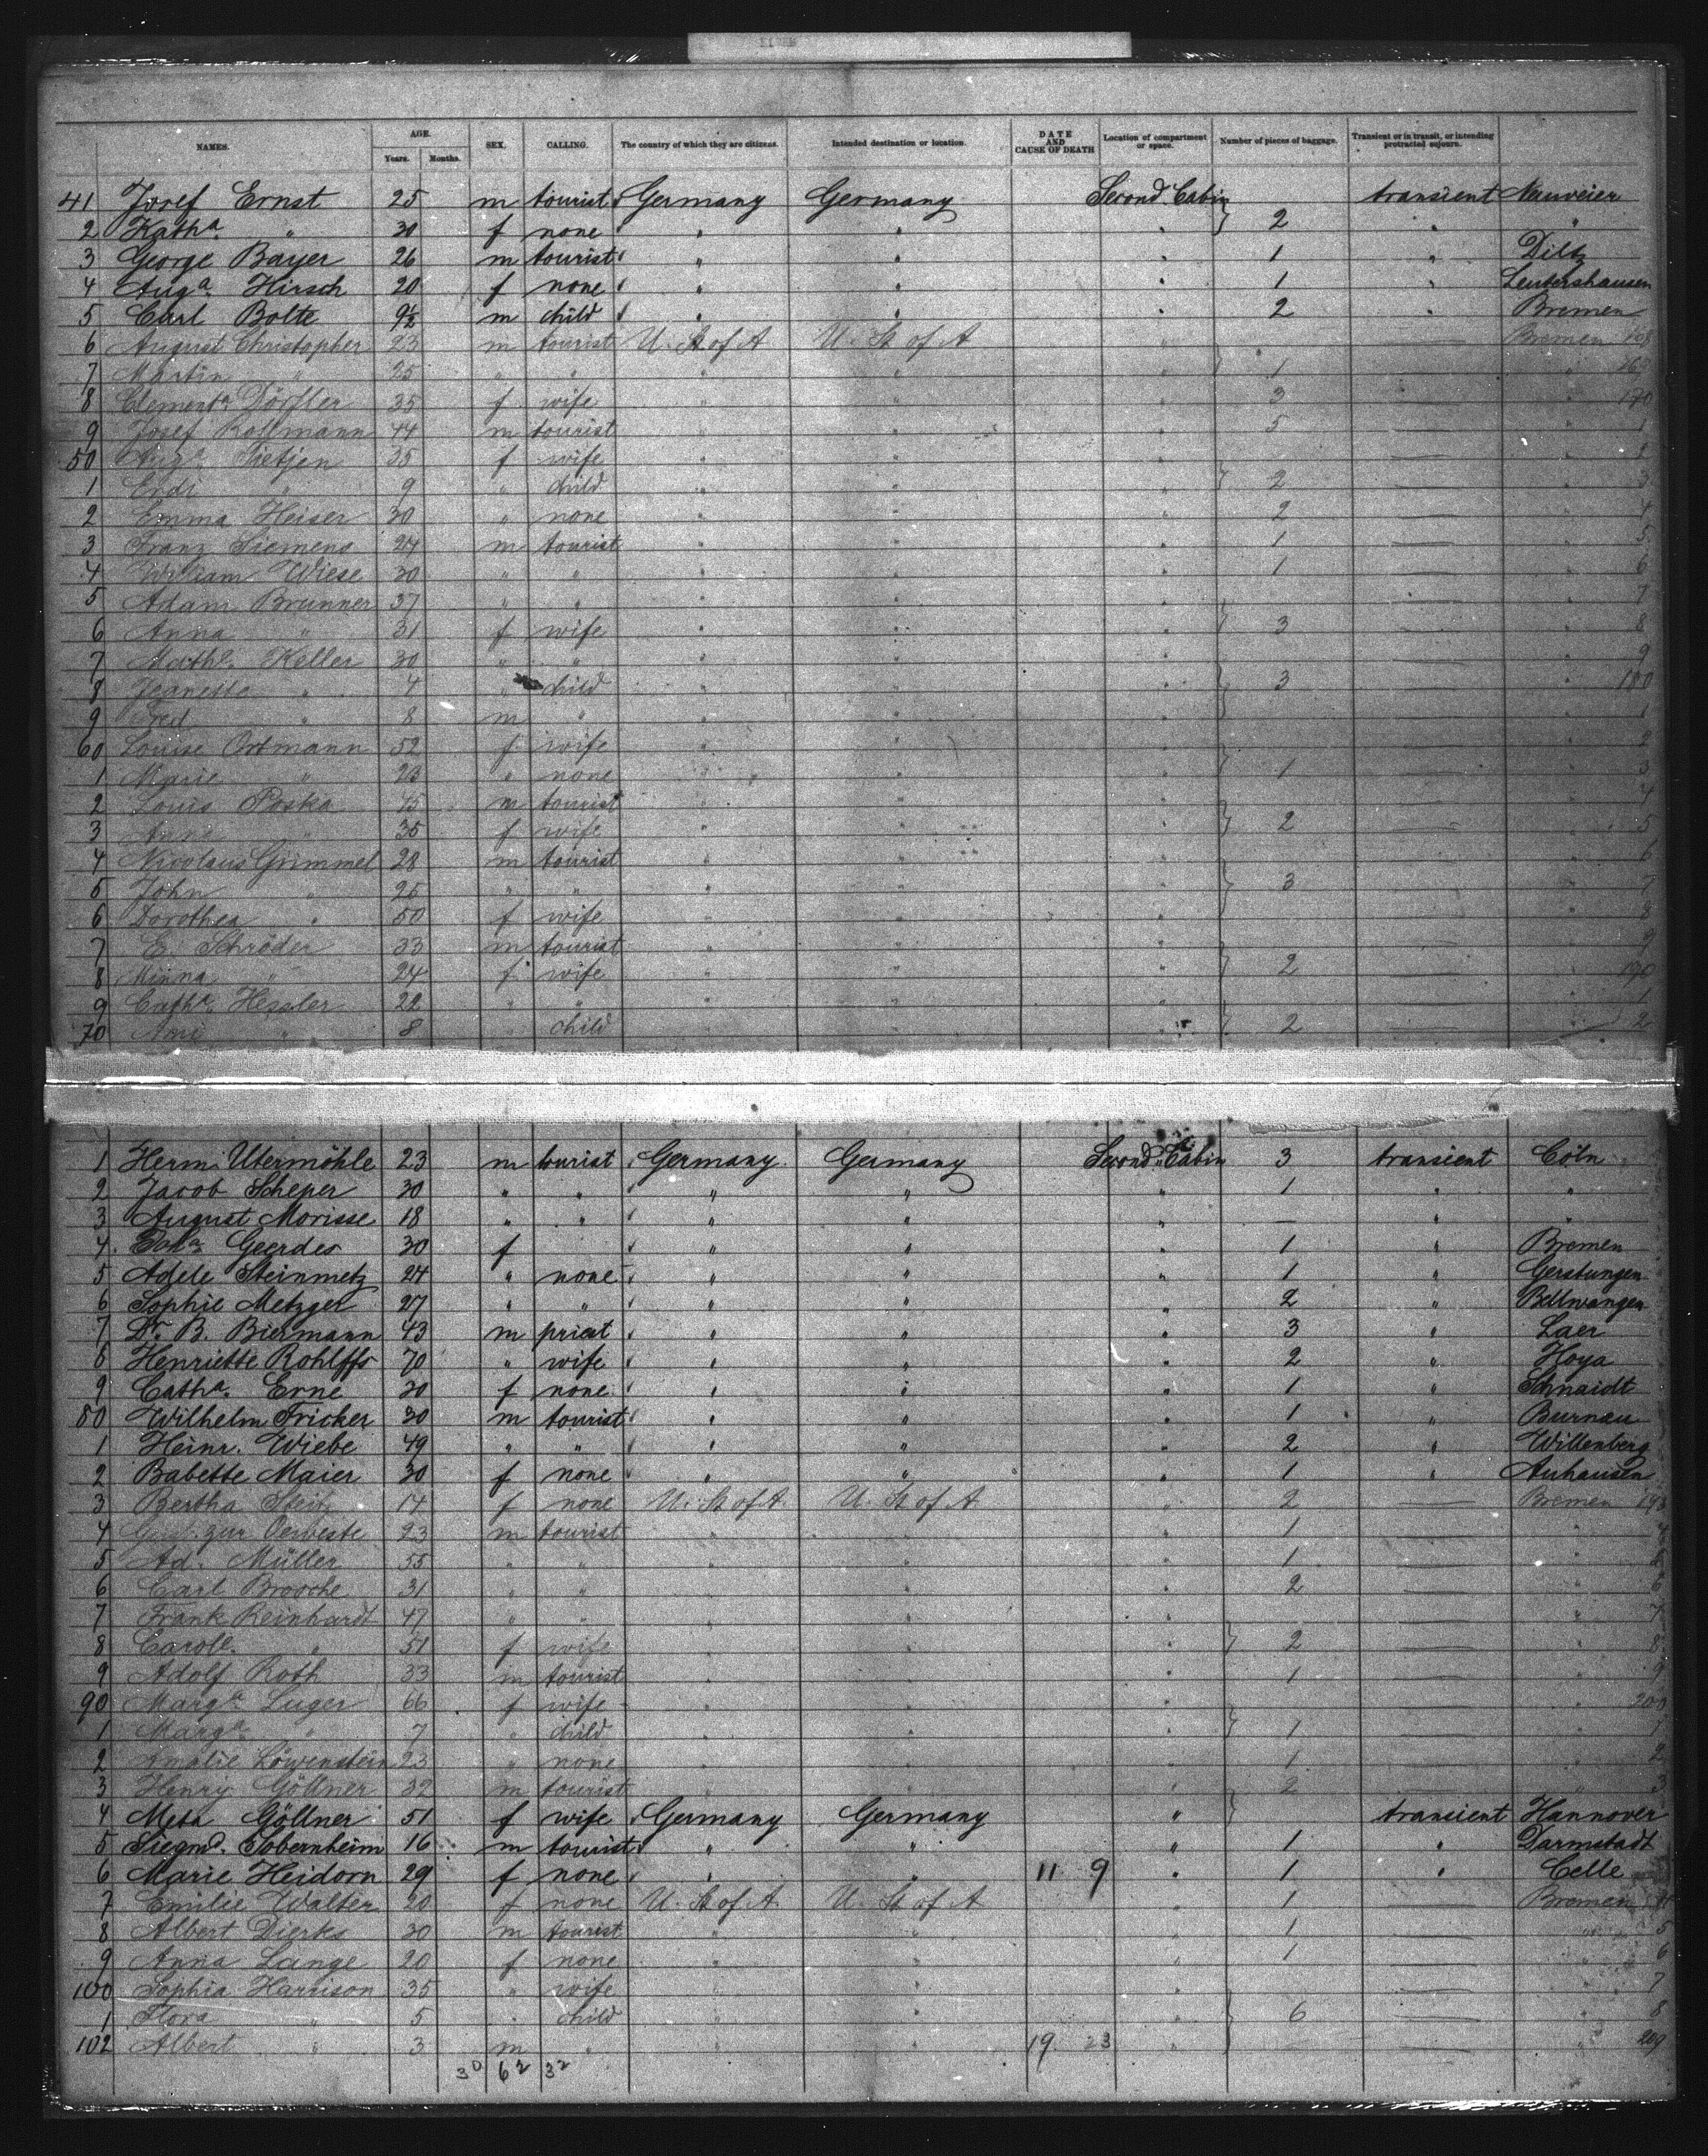 NAMES. AGE. Years. Months. SEX. CALLING. The country of which they are citizens. Intended destination or location. DATE AND CAUSE OF DEATH Location of compartment or space. Number of pieces of baggage. Transient or in transit, or intending protracted sojourn.
41 Josef Ernst 25 m tourist Germany Germany Second Cabin transient Nauweier
2 Katha. " 30 f none " " " } 2 " "
3 George Bayer 26 m tourist " " " 1 " Diltz
4 Auga. Hirsch 20 f none " " " 1 " Leutershausen
5 Carl Bolte 9½ m child " " " 2 " Bremen
6 August Christopher 23 m tourist U. St of A U. St of A " — Bremen 168
7 Martin " 25 " " " " " } 1 — " 169
8 Clementa Dörfler 35 f wife " " " 3 — " 170
9 Josef Rollmann 44 m tourist " " " 5 — " 1
50 Auga. Tietjen 35 f wife " " " — " 2
1 " 9 " child " " " } 2 — " 3
2 Emma Heiser 30 " none " " " 2 — " 4
3 Franz Siemens 24 m tourist " " " 1 — " 5
4 William Wiese 30 " " " " " 1 — " 6
5 Adam Brunner 37 " " " " " — " 7
6 Anna " 31 f wife " " " } 3 — " 8
7 Mathl. Keller 30 " " " " " — " 9
8 Jeanette " 4 " child " " " } 3 — " 180
9 Fred " 8 m " " " " — " 1
60 Louise Ortmann 52 f wife " " " — " 2
1 Marie " 23 " none " " " } 1 — " 3
2 Louis Poska 45 m tourist " " " — " 4
3 Anna " 35 f wife " " " } 2 — " 5
4 Nicolaus Grimmel 28 m tourist " " " — " 6
5 John " 25 " " " " " } 3 — " 7
6 Dorothea " 50 f wife " " " — " 8
7 E. Schröder 33 m tourist " " " — " 9
8 Minna " 24 f wife " " " } 2 — " 190
9 Catha. Hessler 22 " " " " " — " 1
70 " 8 " child " " " } 2 — " 2
1 Herm. Utermöhle 23 m tourist Germany Germany Second Cabin 3 transient Cöln
2 Jacob Scheper 30 " " " " " 1 " "
3 August Morisse 18 " " " " " — " "
4 Joha. Geerdes 30 f " " " 1 " Bremen
5 Adele Steinmetz 24 " none " " " 1 " Gerstungen
6 Sophie Metzger 27 " " " " " 2 " Bellwangen
7 Dr. B. Biermann 43 m priest " " " 3 " Laer
8 Henriette Rohlffs 70 " wife " " " 2 " Hoya
9 Catha. Erne 30 f none " " " 1 " Schnaidt
80 Wilhelm Fricker 30 m tourist " " " 1 " Burnau
1 Heinr. Wiebe 49 " " " " " 2 " Willenberg
2 Babette Maier 30 f none " " " 1 " Auhausen
3 Bertha Steitz 14 f none U. St of A U. St of A " 2 — Bremen 193
4 zur Oeveste 23 m tourist " " " 1 — " 4
5 Ad. Müller 55 " " " " " 1 — " 5
6 Carl Brooche 31 " " " " " 2 — " 6
7 Frank Reinhardt 47 " " " " " — " 7
8 Carole. " 51 f wife " " " } 2 — " 8
9 Adolf Roth 33 m tourist " " " 1 — " 9
90 Marga. Luger 66 f wife " " " — " 200
1 Marga. " 7 " child " " " } 1 — " 1
2 Amalie Löwenstein 23 " none " " " 1 — " 2
3 Henry Göllner 32 m tourist " " " 2 — " 3
4 Meta Göllner 51 f wife Germany Germany " } transient Hannover
5 Siegmd. Sobernheim 16 m tourist " " " 1 " Darmstadt
6 Marie Heidorn 29 f none " " 11 9 " 1 " Celle
7 Emilie Walter 20 f none U. St of A U. St of A " 1 — Bremen 4
8 Albert Dierks 30 m tourist " " " 1 — " 5
9 Anna Lange 20 f none " " " 1 — " 6
100 Sophia Harrison 35 " wife " " " — " 7
1 Flora " 5 " child " " " } 6 — " 8
102 Albert " 3 m " " " 19 23 " — " 209
30 62 32